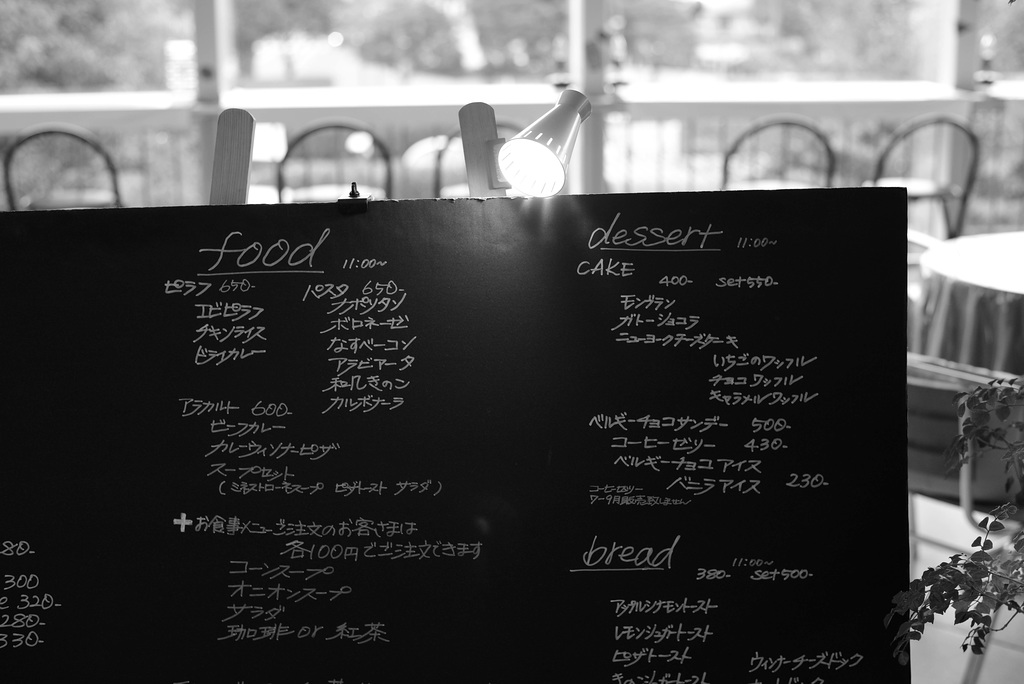 food 11:00~
ピラフ 650-
エビピラフ
チキンライス
ドライカレー
パスタ 650-
ナポリタン
ボロネーゼ
なすベーコン
アラビアータ
和風きのこ
カルボナーラ
アラカルト 600-
ビーフカレー
カレーウィンナーピザ
スープセット
(ミネストローネスープ ピザトースト サラダ)
+お食事メニューご注文のお客さまは
各100円でご注文できます
コーンスープ
オニオンスープ
サラダ
珈琲 or 紅茶
80-
300
e 320-
280-
330-
dessert 11:00~
CAKE
400- set550-
モンブラン
ガトーショコラ
ニューヨークチーズケーキ
いちごのワッフル
チョコワッフル
キャラメルワッフル
ベルギーチョコサンデー 500-
コーヒーゼリー 430-
ベルギーチョコアイス
バニラアイス 230-
コーヒーゼリー
7-9月販売致しません
bread 11:00~
380- set500-
アップルシナモントースト
レモンシュガートースト
ピザトースト
ウィンナーチーズドック